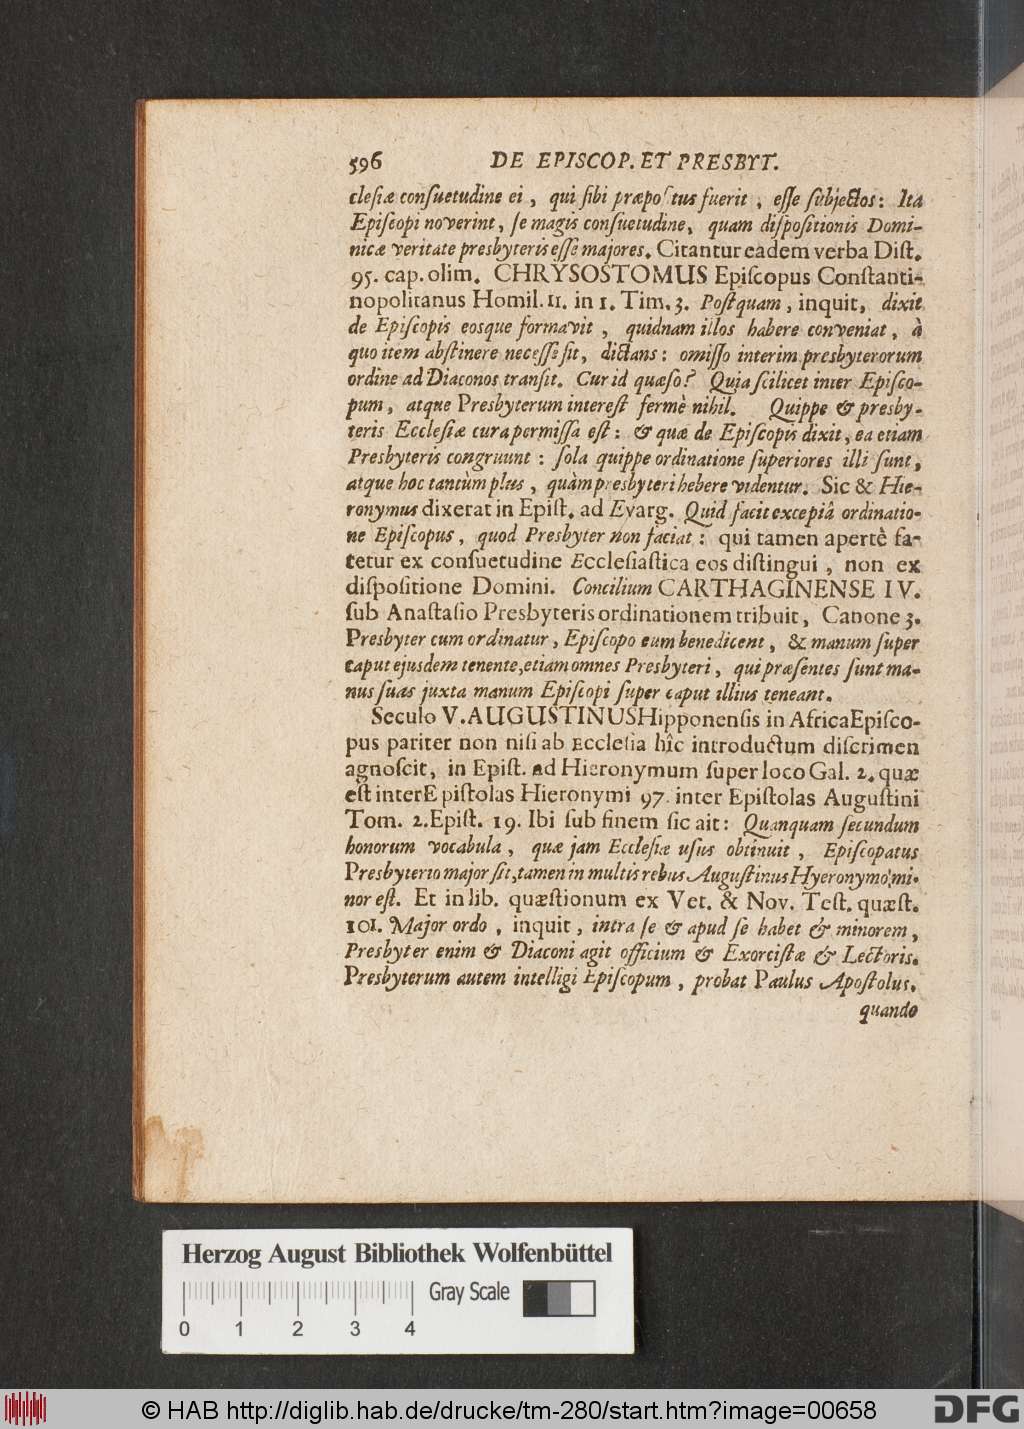 596 DE EPISCOP. ET PRESBYT.
cleſiæ conſuetudine ei, qui ſibi præpoſ tus fuerit, eſſe ſubjectos: Ita
Epiſcopi noverint, ſe magis conſuetudine, quam diſpoſitionis Domi-
nicæ veritate presbyteris eſſe majores. Citantur eadem verba Diſt.
95. cap. olim. CHRYSOSTOMUS Epiſcopus Conſtanti-
nopolitanus Homil. 11. in 1. Tim. 3. Poſtquam, inquit, dixit
de Epiſcopis eosque formavit, quidnam illos habere conveniat, à
quo item abſtinere neceſſe ſit, dictans: omiſſo interim presbyterorum
ordine ad Diaconos tranſit. Cur id quæſo? Quia ſcilicet inter Epiſco-
pum, atque Presbyterum intereſt fermè nihil. Quippe & presby-
teris Eccleſiæ cura permiſſa eſt: & quæ de Epiſcopis dixit, ea etiam
Presbyteris congruunt: ſola quippe ordinatione ſuperiores illi ſunt,
atque hoc tantùm plus, quàm presbyteri hebere videntur. Sic & Hie-
ronymus dixerat in Epiſt. ad Evarg. Quid facit exceptâ ordinatio-
ne Epiſcopus, quod Presbyter non faciat: qui tamen apertè fa-
tetur ex conſuetudine Eccleſiaſtica eos diſtingui, non ex
diſpoſitione Domini. Concilium CARTHAGINENSE IV.
ſub Anaſtaſio Presbyteris ordinationem tribuit, Canone 3.
Presbyter cum ordinatur, Epiſcopo eum benedicent, & manum ſuper
caput ejusdem tenente, etiam omnes Presbyteri, qui præſentes ſunt ma-
nus ſuas juxta manum Epiſcopi ſuper caput illius teneant.
Seculo V. AUGUSTINUS Hipponenſis in Africa Epiſco-
pus pariter non niſi ab Eccleſia hîc introductum diſcrimen
agnoſcit, in Epiſt. ad Hieronymum ſuper loco Gal. 2. quæ
eſt inter Epiſtolas Hieronymi 97. inter Epiſtolas Auguſtini
Tom. 2. Epiſt. 19. Ibi ſub finem ſic ait: Quanquam ſecundum
honorum vocabula, quæ jam Eccleſiæ uſus obtinuit, Epiſcopatus
Presbyterio major ſit, tamen in multis rebus Auguſtinus Hyeronymo mi-
nor eſt. Et in lib. quæſtionum ex Vet. & Nov. Teſt. quæſt.
101. Major ordo, inquit, intra ſe & apud ſe habet & minorem,
Presbyter enim & Diaconi agit officium & Exorciſtæ & Lectoris.
Presbyterum autem intelligi Epiſcopum, probat Paulus Apoſtolus,
quando
Herzog August Bibliothek Wolfenbüttel
Gray Scale
0 1 2 3 4
© HAB http://diglib.hab.de/drucke/tm-280/start.htm?image=00658
DFG